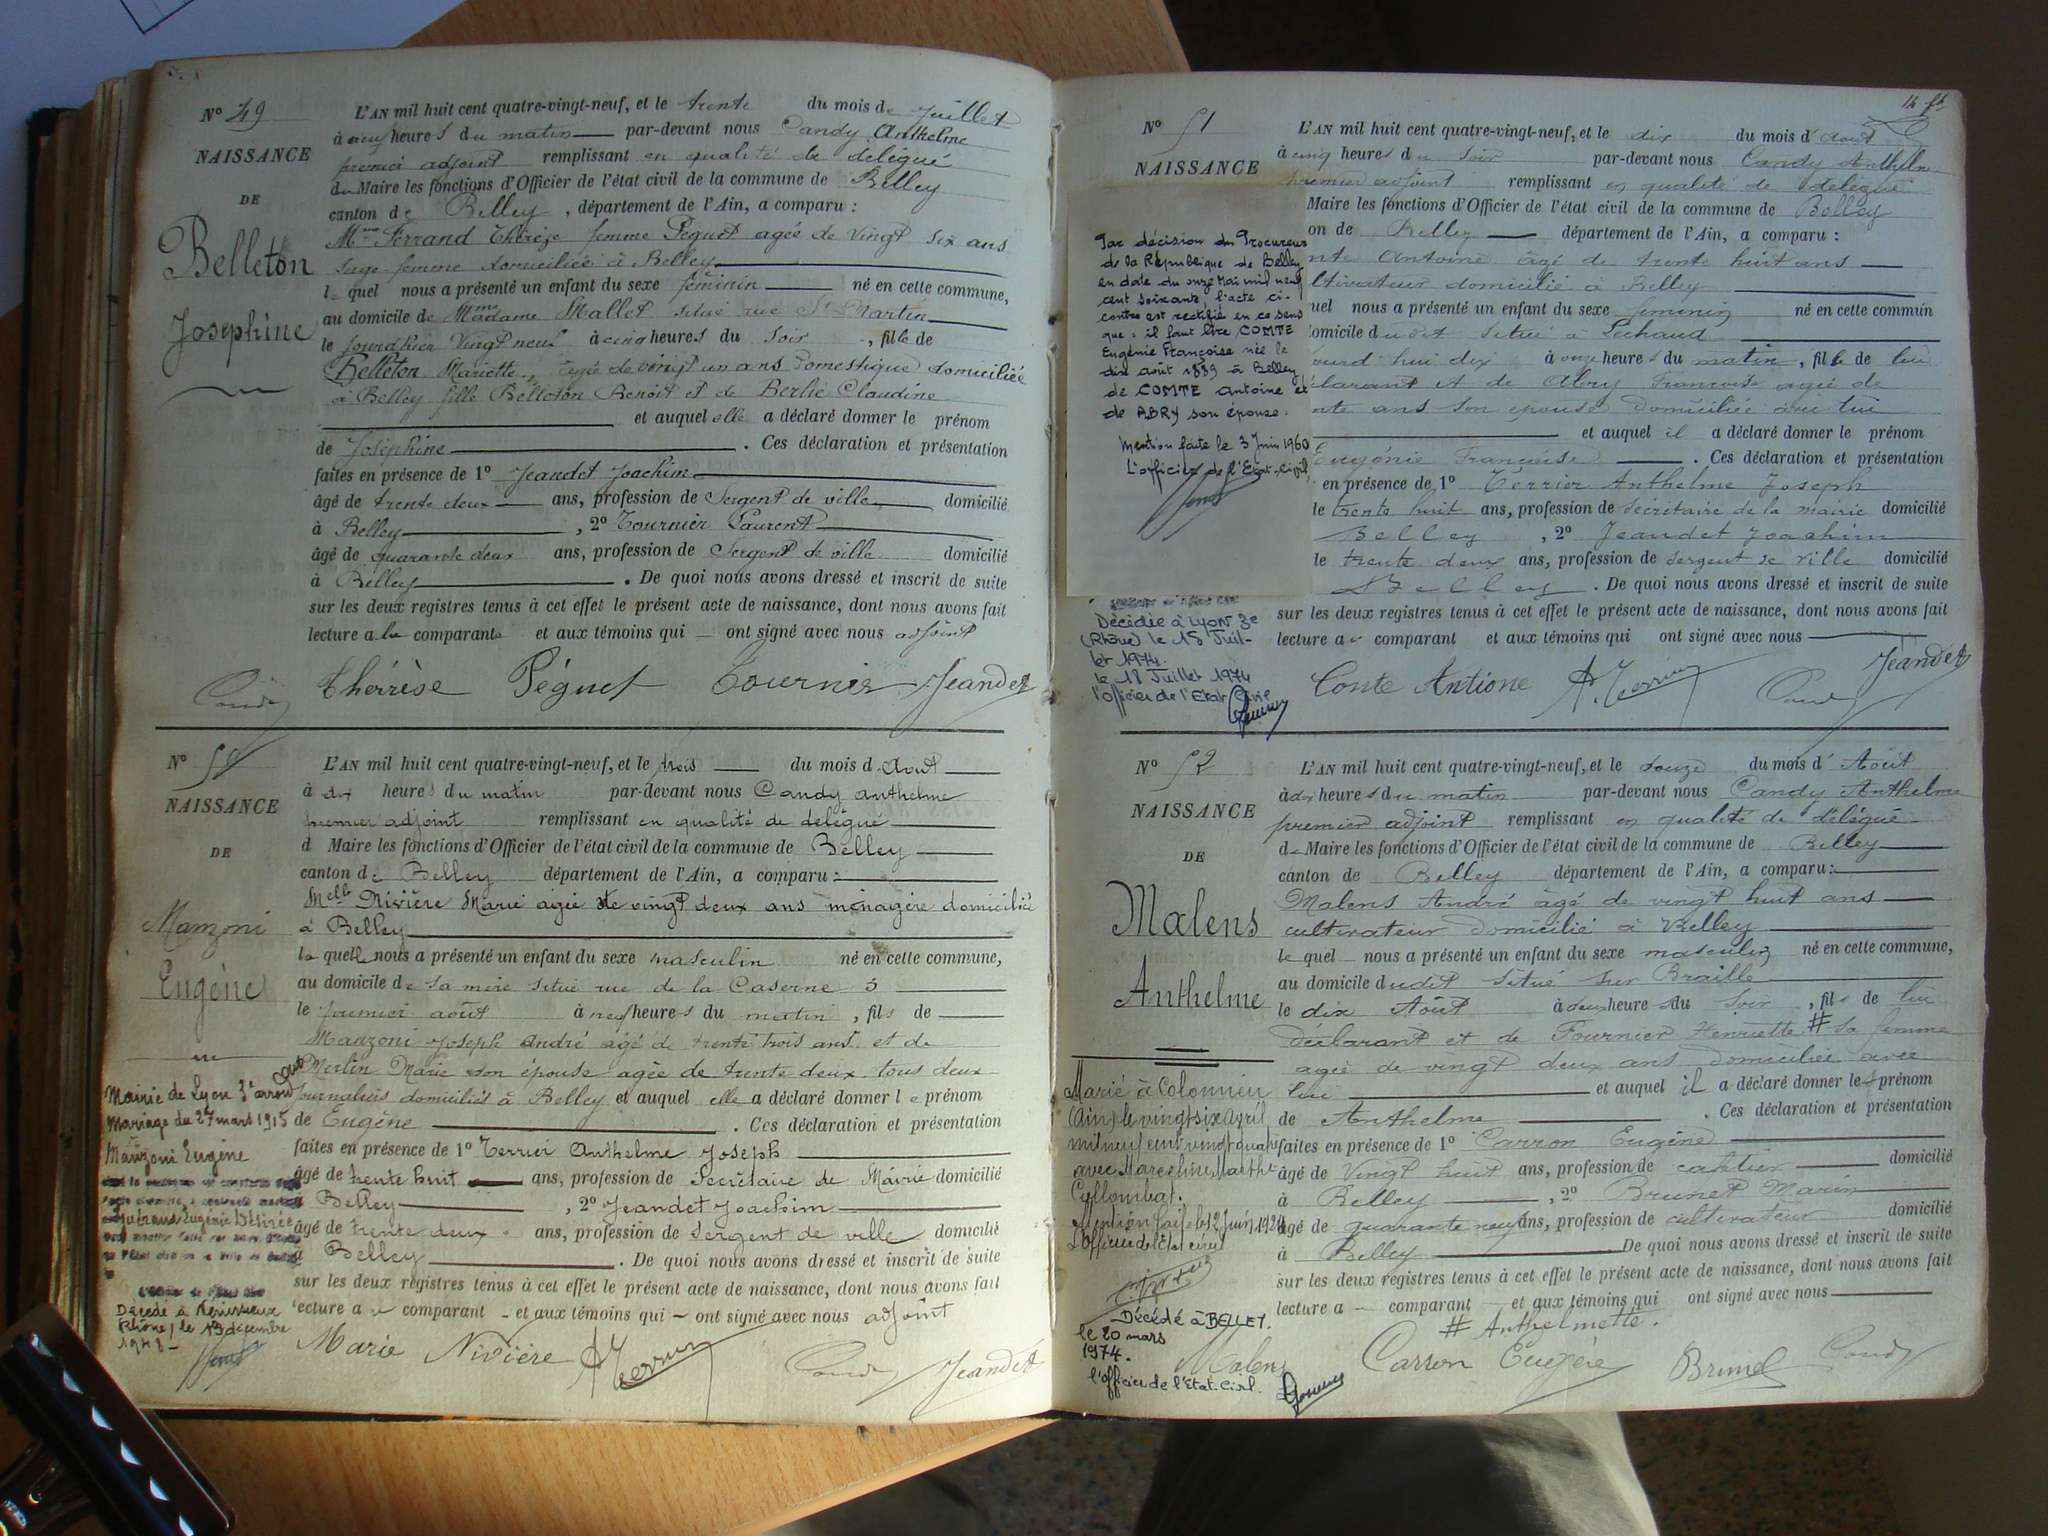 N° 49
NAISSANCE
DE
Belleton
Joséphine
L'AN mil huit cent quatre-vingt-neuf, et le trente du mois de Juillet
à neuf heures du matin par-devant nous Candy Anthelme
premier adjoint remplissant en qualité de délégué
du Maire les fonctions d'Officier de l'état civil de la commune de Belley
canton de Belley, département de l'Ain, a comparu :
Mme Ferrand Thérèse femme Péguet agée de vingt six ans
sage femme domiciliée à Belley
le quel nous a présenté un enfant du sexe féminin né en cette commune,
au domicile de Madame Mallet situé rue St Martin
le jourd'hier vingt neuf à cinq heures du soir, fille de
Belleton Mariette, agée de vingt un ans Domestique domiciliée
à Belley fille Belleton Benoit et de Berlié Claudine
et auquel elle a déclaré donner le prénom
de Joséphine. Ces déclaration et présentation
faites en présence de 1° Jeandet Joachim
âgé de trente deux ans, profession de Sergent de ville, domicilié
à Belley, 2° Tournier Laurent
âgé de quarante deux ans, profession de Sergent de ville domicilié
à Belley. De quoi nous avons dressé et inscrit de suite
sur les deux registres tenus à cet effet le présent acte de naissance, dont nous avons fait
lecture a la comparante et aux témoins qui ont signé avec nous adjoint
Candy Thérèse Péguet Tournier Jeandet
N° 50
NAISSANCE
DE
Manzoni
Eugène
L'AN mil huit cent quatre-vingt-neuf, et le trois du mois d Août
à dix heures du matin par-devant nous Candy Anthelme
premier adjoint remplissant en qualité de délégué
d Maire les fonctions d'Officier de l'état civil de la commune de Belley
canton de Belley département de l'Ain, a comparu :
Melle Nivière Marie agée de vingt deux ans ménagère domiciliée
à Belley
la quelle nous a présenté un enfant du sexe masculin né en cette commune,
au domicile de sa mère situé rue de la Caserne 3
le premier août à neuf heures du matin, fils de
Manzoni Joseph André agé de trente trois ans et de
Merlin Marie son épouse agée de trente deux tous deux
journaliers domiciliés à Belley et auquel elle a déclaré donner le prénom
de Eugène. Ces déclaration et présentation
faites en présence de 1° Terrier Anthelme Joseph
âgé de trente huit ans, profession de Secrétaire de Mairie domicilié
à Belley, 2° Jeandet Joachim
âgé de trente deux ans, profession de Sergent de ville domicilié
à Belley. De quoi nous avons dressé et inscrit de suite
sur les deux registres tenus à cet effet le présent acte de naissance, dont nous avons fait
lecture a comparant et aux témoins qui ont signé avec nous adjoint
Marie Nivière A Terrier Candy Jeandet
Mairie de Lyon 3e arrond
Mariage du 27 mars 1915
Manzoni Eugène
Eugénie Désirée
Décédé à Vénissieux
Rhône, le 13 décembre
14 
N° 51
NAISSANCE
L'AN mil huit cent quatre-vingt-neuf, et le dix du mois d'août
à cinq heures du soir par-devant nous Candy Anthelme
premier adjoint remplissant en qualité de délégué
Maire les fonctions d'Officier de l'état civil de la commune de Belley
on de Belley département de l'Ain, a comparu :
nte Antoine âgé de trente huit ans
ltivateur domicilié à Belley
uel nous a présenté un enfant du sexe féminin né en cette commun
omicile dudit situé à Lechaud
ourd'hui dix à onze heures du matin, fille de lui
clarant et de Abry Françoise agée de
nte ans son épouse domiciliée avec lui
et auquel il a déclaré donner le prénom
Eugénie Françoise. Ces déclaration et présentation
en présence de 1° Terrier Anthelme Joseph
le trente huit ans, profession de secrétaire de la mairie domicilié
Belley, 2° Jeandet Joachim
le trente deux ans, profession de sergent de ville domicilié
Belley. De quoi nous avons dressé et inscrit de suite
sur les deux registres tenus à cet effet le présent acte de naissance, dont nous avons fait
lecture a comparant et aux témoins qui ont signé avec nous
Conte Antione A. Terrier Candy Jeandet
Par décision du Procureur
de la République de Belley
en date du onze Mai mil neuf
cent soixante, l'acte ci-
contre est rectifié en ce sens
que : il faut lire COMTE
Eugénie Françoise née le
dix août 1889 à Belley
de COMTE Antoine et
de ABRY son épouse.
Mention faite le 3 Juin 1960
L'officier de l'Etat-Civil,
Décédée à LYON 3e
(Rhône) le 15 Juil-
let 1974.
le 18 Juillet 1974
l'officier de l'Etat Civil
N° 52
NAISSANCE
DE
Malens
Anthelme
L'AN mil huit cent quatre-vingt-neuf, et le douze du mois d'Août
à dix heures du matin par-devant nous Candy Anthelme
premier adjoint remplissant en qualité de délégué
de Maire les fonctions d'Officier de l'état civil de la commune de Belley
canton de Belley département de l'Ain, a comparu :
Malens André âgé de vingt huit ans
cultivateur domicilié à Belley
le quel nous a présenté un enfant du sexe masculin né en cette commune,
au domicile dudit situé sur Braille
le dix Août à deux heures du soir, fils de lui
déclarant et de Fournier Henriette # sa femme
agée de vingt deux ans domiciliée avec
lui et auquel il a déclaré donner le prénom
de Anthelme. Ces déclaration et présentation
faites en présence de 1° Carron Eugène
âgé de vingt huit ans, profession de domicilié
à Belley, 2° Brunet Marin
âgé de quarante neuf ans, profession de cultivateur domicilié
à Belley De quoi nous avons dressé et inscrit de suite
sur les deux registres tenus à cet effet le présent acte de naissance, dont nous avons fait
lecture a comparant et aux témoins qui ont signé avec nous
# Anthelmette.
Malens Carron Eugène Brunet Candy
Marié à Colomieu
(Ain) le vingt six avril
mil neuf cent vingt quatre
avec Marceline Marthe
Cyllombat.
Mention faite le 12 Juin 1924
L'Officier de l'Etat civil
Décédé à BELLEY.
le 20 mars
1974.
l'officier de l'Etat-Civil.